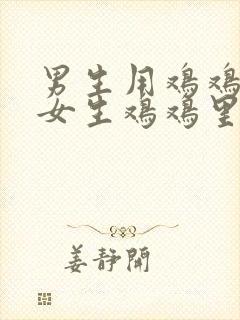 男生用鸡鸡
女生鸡鸡里
姜静開